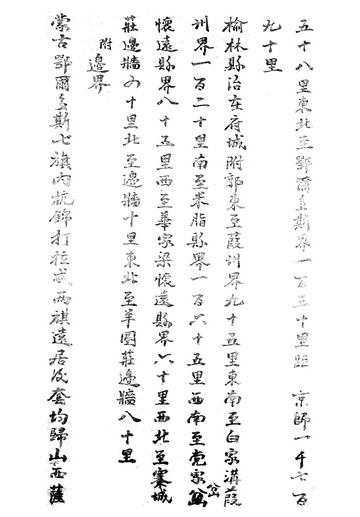 五十八里東北至鄂爾多斯界一百五十里距 京師一千七百
九十里
榆林縣治在府城附郭東至葭州界九十五里東南至白家溝葭
州界一百二十里南至米脂縣界一百六十五里西南至党家岔
岔
懷遠縣界八十五里西至華家梁懷遠縣界六十里西北至寨城
莊邊牆四十里北至邊牆十里東北至羊圈莊邊牆八十里
附邊界
蒙古鄂爾多斯七旗內杭錦打拉忒兩旗遠居後套均歸山西薩